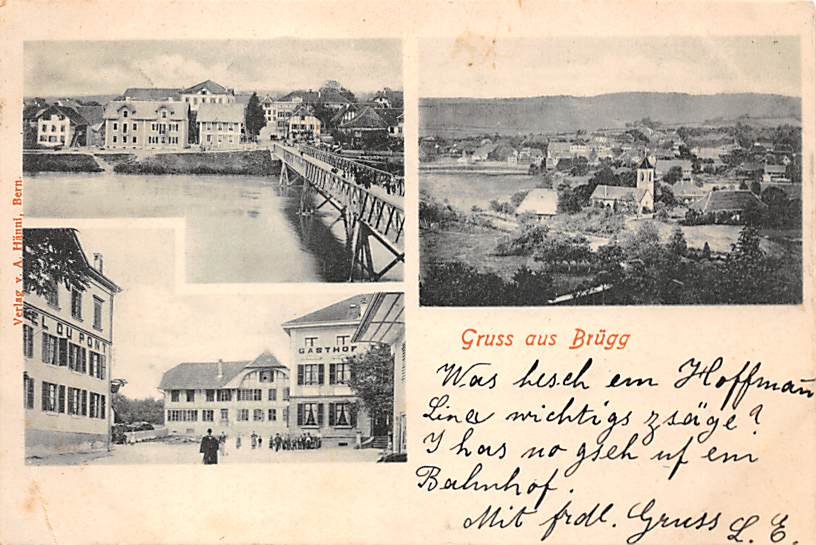 Verlag v. A. Hänni, Bern.
EL DU PONT
GASTHOF
Gruss aus Brügg
Was hesch em Hoffmann
Lina wichtigs zsäge?
I has no gseh uf em
Bahnhof.
Mit frdl. Gruss L. E.